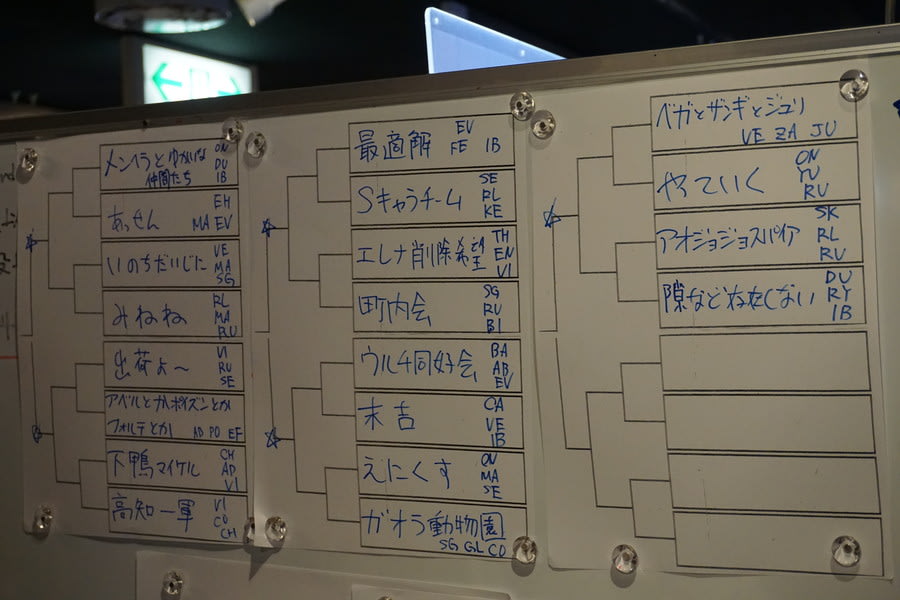 メンヘラとゆかいな
仲間たち
ON
DU
IB
あっせん
EH
MA EV
いのちだいじに
VE
MA
SG
みねね
RL
MA
RU
出荷よ〜
VI
RU
SE
アベルとかポイズンとか
フォルテとか AD PO EF
下鴨マイケル
CH
AD
VI
高知一軍
VI
CO
CH
最適解
EV
FE IB
Sキャラチーム
SE
RL
KE
エレナ削除希望
TH
EN
VI
町内会
SG
RU
BI
ウル4同好会
BA
AB
EV
末吉
CA
VE
IB
えにくす
ON
MA
SE
ガオラ動物園
SG GL CO
ベガとザンギとジュリ
VE ZA JU
やっていく
ON
YU
RU
アオジョジョスパイア
SK
RL
RU
隙などねぇしない
DU
RY
IB